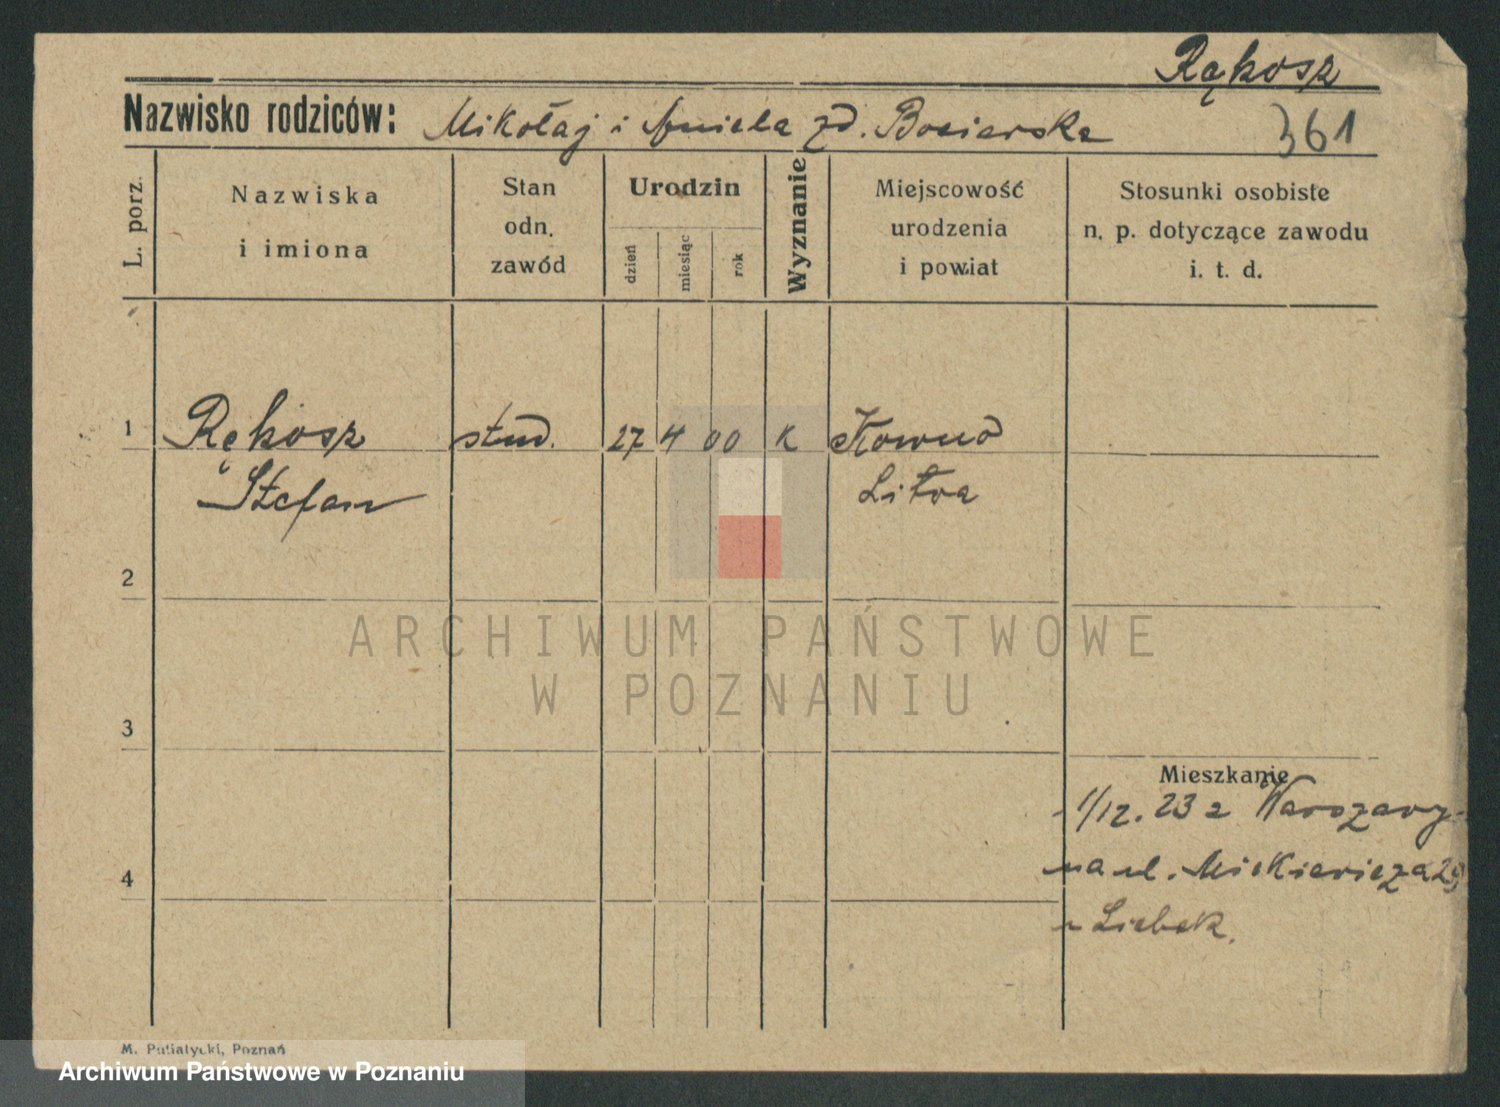 Rękosz
Nazwisko rodziców: Mikołaj i Aniela zd.
361
L. porz.
Nazwiska
i imiona
Stan
odn.
zawód
Urodzin
dzień
miesiąc
rok
Wyznanie
Miejscowość
urodzenia
i powiat
Stosunki osobiste
n. p. dotyczące zawodu
i. t. d.
1 Rękosz stud. 27 4 00 K Kowno
Stefan Litwa
2
ARCHIWUM PAŃSTWOWE
W POZNANIU
3
Mieszkanie
1/12. 23 z Warszawy
na ul. Mickiewicza 29
4
u Liebek.
M. Putiatycki, Poznań
Archiwum Państwowe w Poznaniu